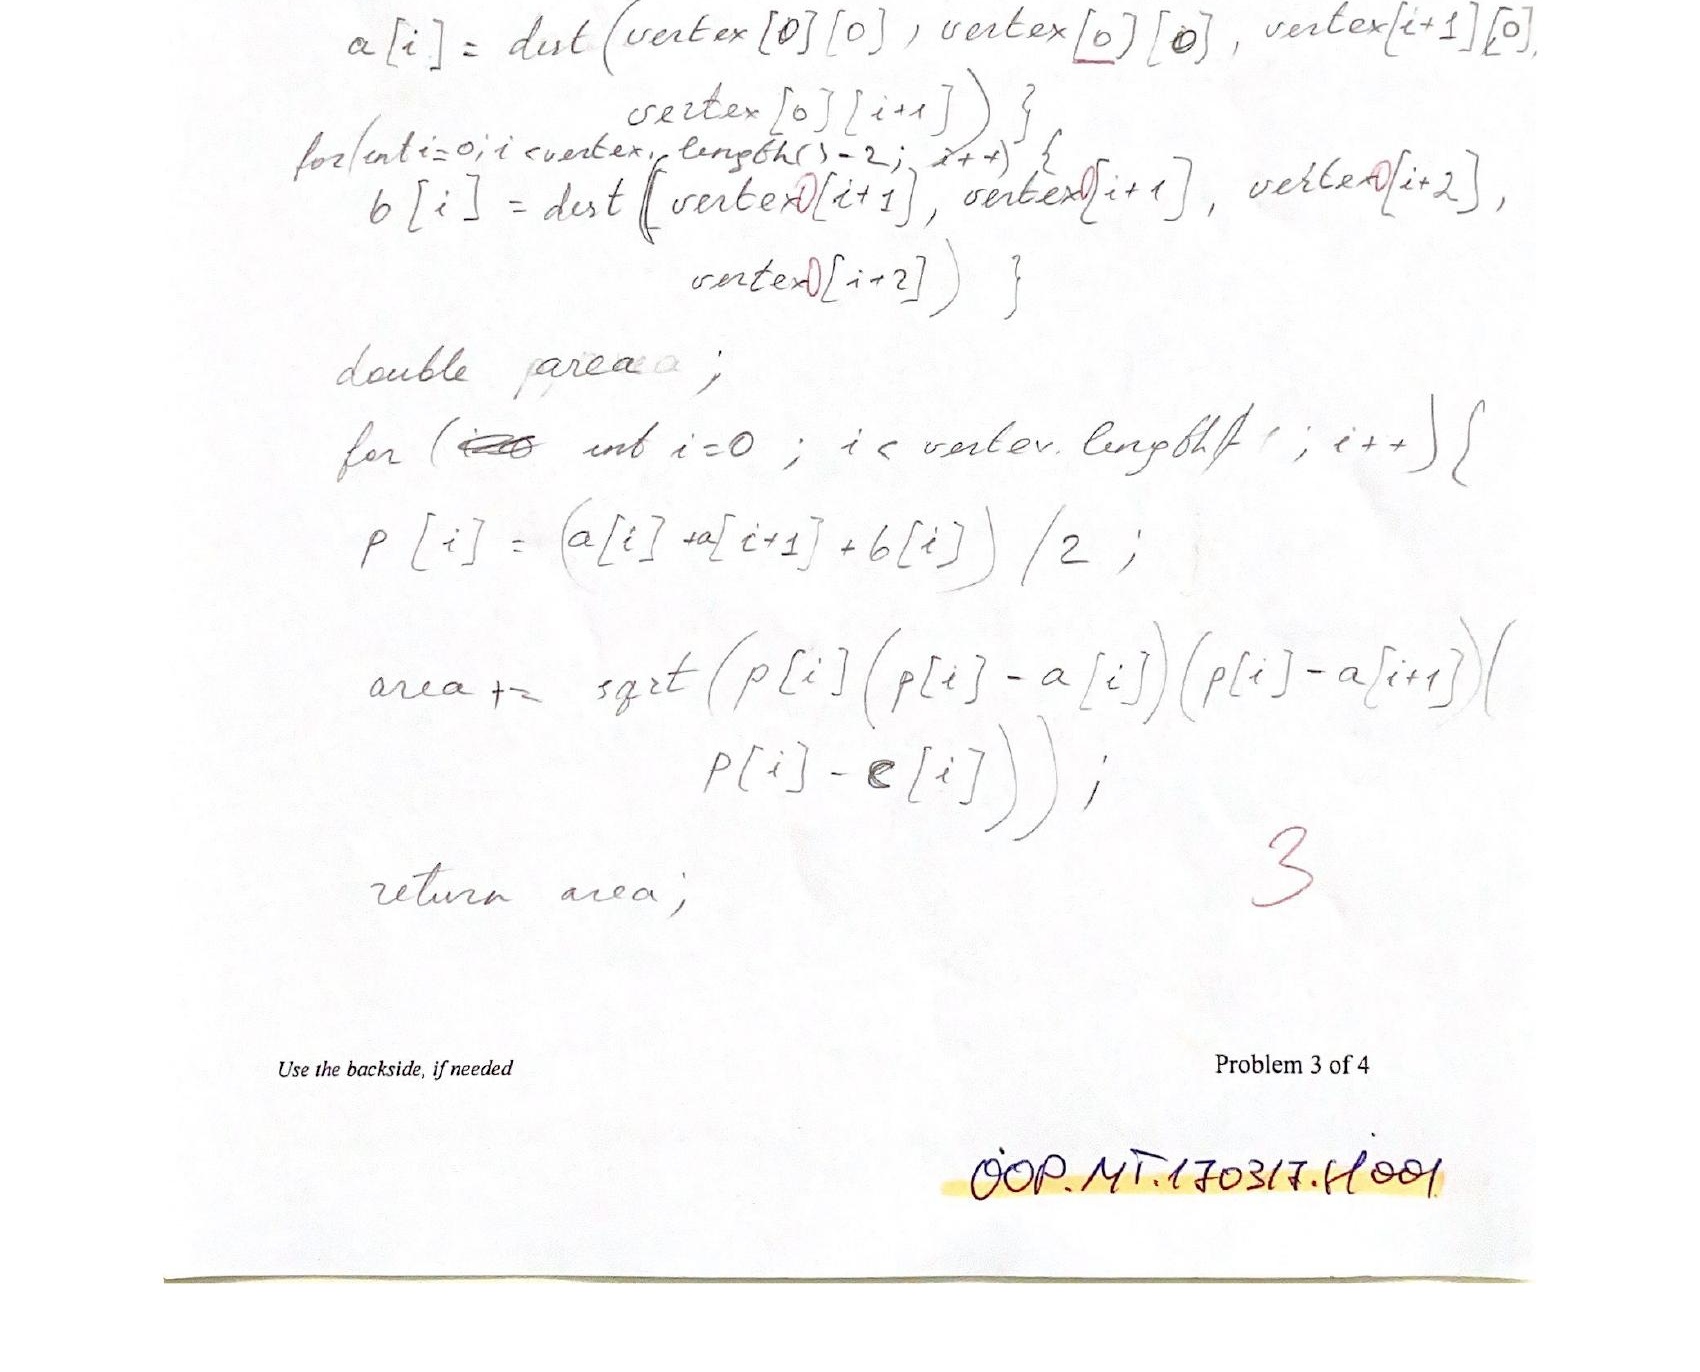 a[i] = dist(vertex[0][0], vertex[0][0], vertex[i+1][0],
vertex[0][i+1]) }
for(int i=0; i<vertex.length()-2; i++) {
b[i] = dist(vertex[i+1], vertex[i+1], vertex[i+2],
vertex[i+2]) }
double area;
for ( int i=0 ; i < vertex.length ; i++){
p[i] = (a[i] +a[i+1] +b[i]) /2 ;
area += sqrt(p[i](p[i]-a[i])(p[i]-a[i+1])(
p[i]-c[i]));
3
return area;
Use the backside, if needed
Problem 3 of 4
OOP.MT.170317.H001